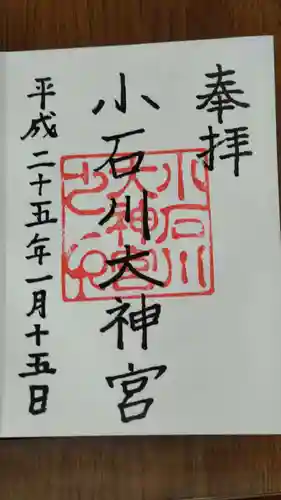 奉拝
小石川大神宮
平成二十五年一月十五日
小石川
大神宮